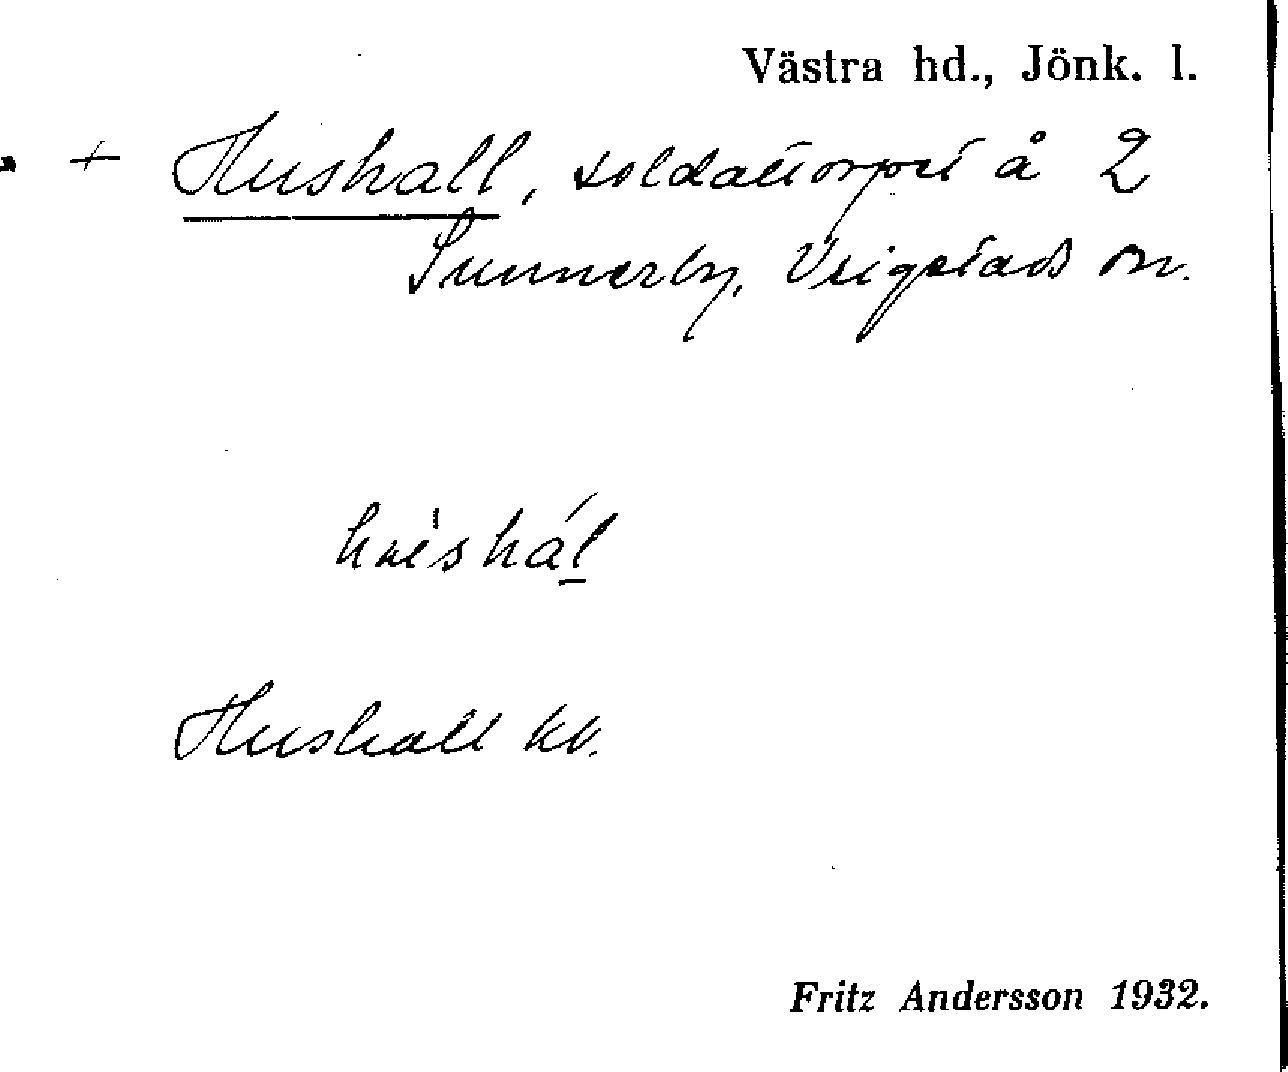 Västra hd., Jönk. l.
+ Hushall, soldattorpet å 2
Sunnerby, Vrigstads sn.
Hushall kb.
Fritz Andersson 1932.